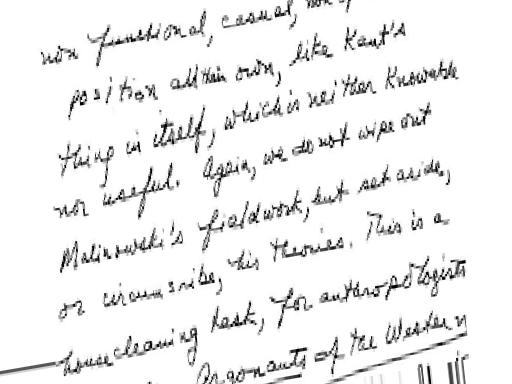 non functional, casual, non
position all their own, like Kant's
thing in itself, which is neither knowable
nor useful. Again, we do not wipe out
Malinowski's fieldwork, but set aside,
or circumscribe, his theories. This is a
housecleaning task, for anthropologists
Argonauts of the Western